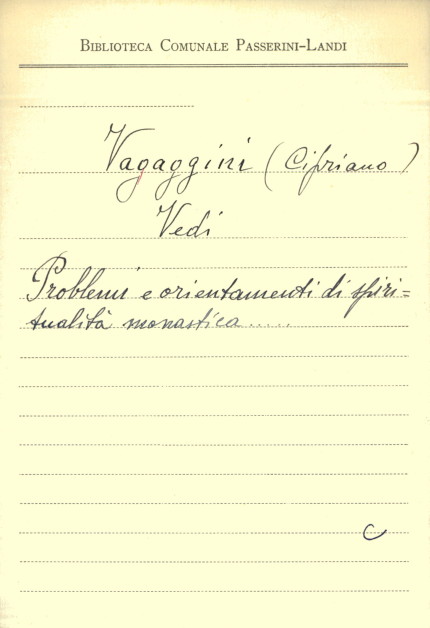 BIBLIOTECA COMUNALE PASSERINI-LANDI
Vagaggini (Cipriano)
Vedi
Problemi e orientamenti di spiri=
tualità monastica.....
C